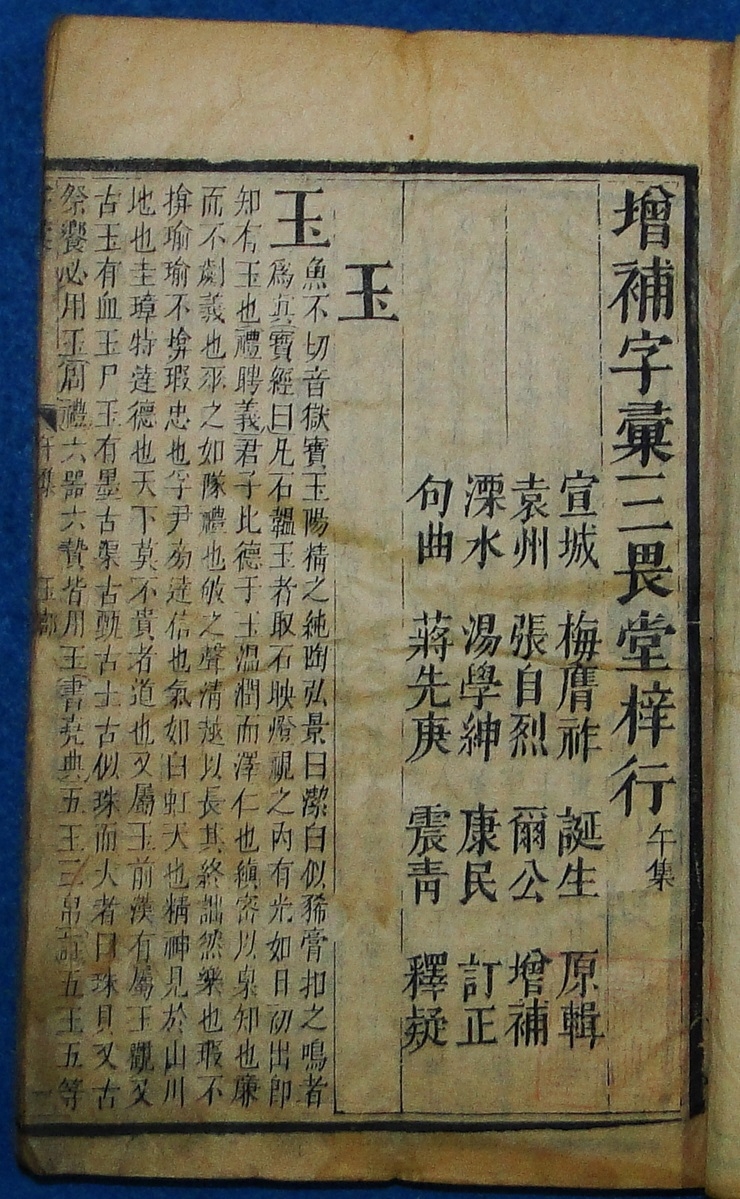 增補字彙三畏堂梓行 午集
宣城 梅膺祚 誕生 原輯
袁州 張自烈 爾公 增補
溧水 湯學紳 康民 訂正
句曲 蔣先庚 震青 釋疑
玉
玉 魚不切音獄寶玉陽精之純陶弘景曰潔白似豨膏扣之鳴者
爲真寶經曰凡石韞玉者取石映燈視之內有光如日初出卽
知有玉也禮聘義君子比德于玉溫潤而澤仁也縝宻以栗知也廉
而不劌義也𠂹之如隊禮也敂之聲清越以長其終詘然樂也瑕不
揜瑜瑜不揜瑕忠也孚尹旁達信也氣如白虹天也精神見於山川
地也圭璋特達德也天下莫不貴者道也又屬玉前漢有屬玉觀又
古玉有血玉尸玉有墨古 古 古土古似珠而大者曰珠貝又古
祭饗必用玉周禮六器六贄皆用玉書堯典五玉三帛註五玉五等
午集 玉部